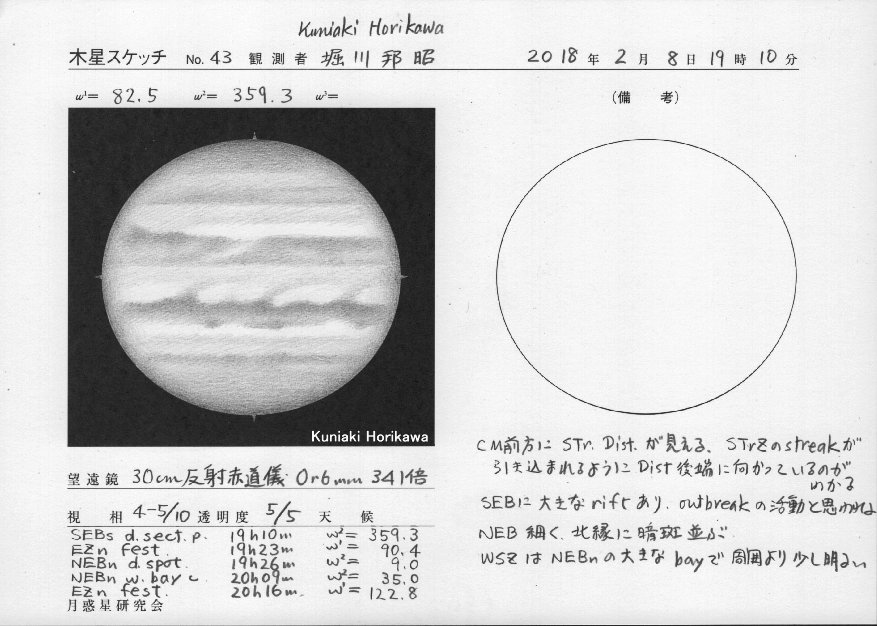 Kuniaki Horikawa
木星スケッチ No. 43 観測者 堀川邦昭 2018年2月8日19時10分
ω¹= 82.5 ω²= 359.3 ω³=
(備 考)
Kuniaki Horikawa
望遠鏡 30cm反射赤道儀 Or6mm 341倍
視 相 4-5/10 透明度 5/5 天 候
SEBs d. sect. p. 19h10m ω²= 359.3
EZn fest. 19h23m ω¹= 90.4
NEBn d. spot. 19h26m ω²= 9.0
NEBn w. bay c. 20h09m ω²= 35.0
EZn fest. 20h16m. ω¹= 122.8
月惑星研究会
CM前方に STr. Dist. が見える、STrZのstreakが
引き込まれるように Dist後端に向かっているのが
わかる
SEBに大きなriftあり、outbreakの活動と思われる
NEB 細く、北縁に暗斑並ぶ
WSZはNEBnの大きなbayで周囲より少し明るい